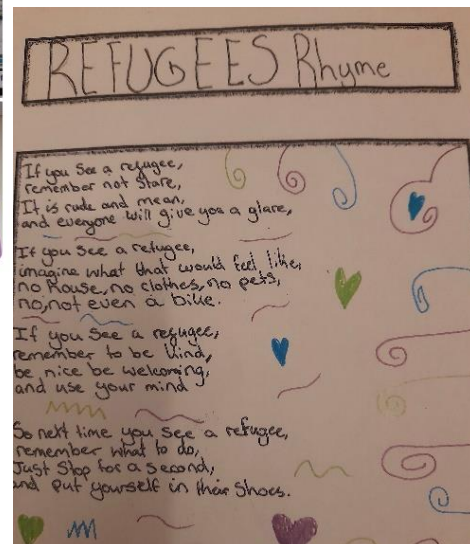 REFUGEES Rhyme
If you see a refugee,
remember not stare,
It is rude and mean,
and everyone will give you a glare,
If you see a refugee,
imagine what that would feel like,
no house, no clothes, no pets,
no, not even a bike.
If you see a refugee,
remember to be kind,
be nice be welcoming,
and use your mind
So next time you see a refugee,
remember what to do,
Just Stop for a second,
and put yourself in their shoes.